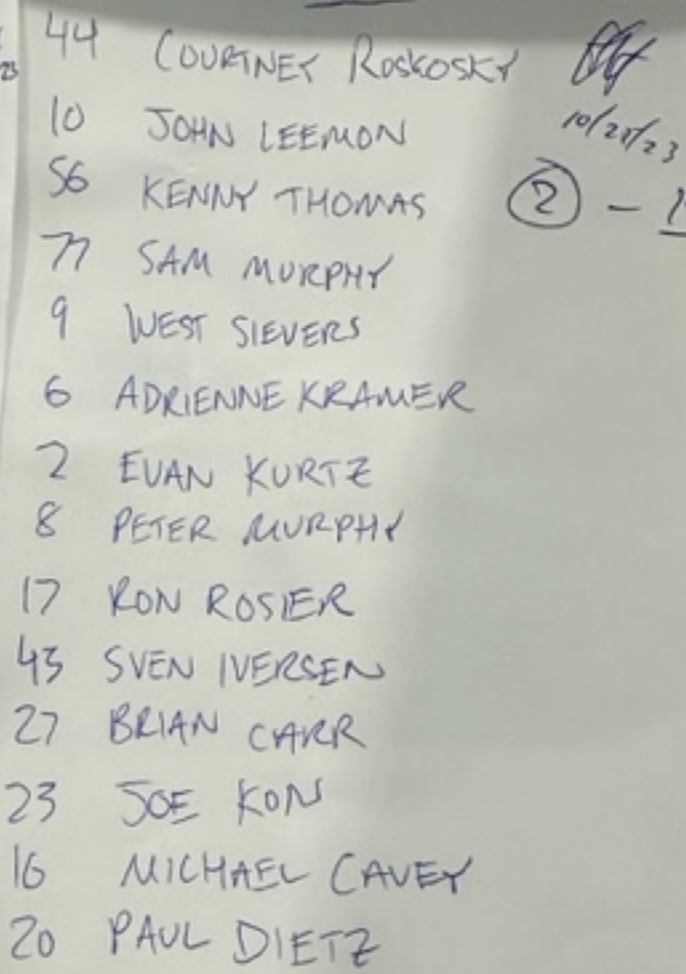 44 COURTNEY ROSKOSKY
10 JOHN LEEMON
10/21/23
56 KENNY THOMAS
2 -
77 SAM MURPHY
9 WEST SIEVERS
6 ADRIENNE KRAMER
2 EVAN KURTZ
8 PETER MURPHY
17 RON ROSIER
43 SVEN IVERSEN
27 BRIAN CARR
23 JOE KON
16 MICHAEL CAVEY
20 PAUL DIETZ